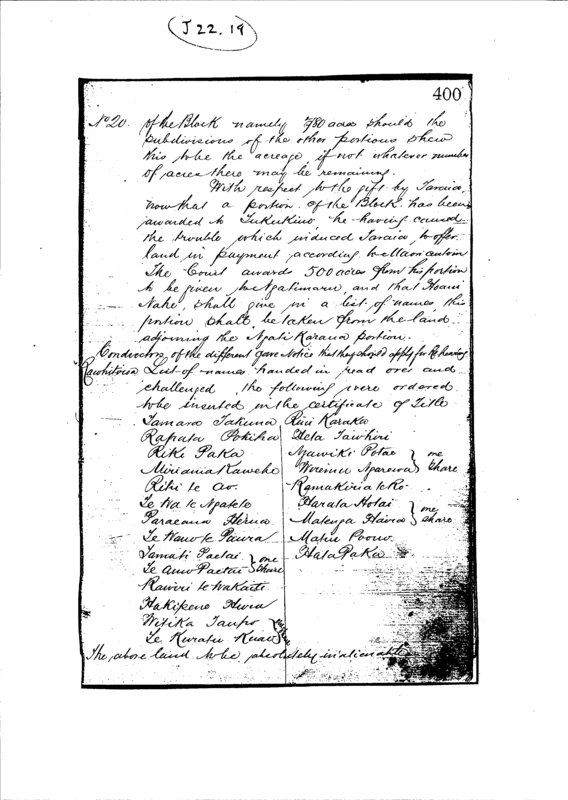 J 22. 19
400
No 20. of the Block namely 780 acres should the
subdivisions of the other portions shew
this to be the acreage, if not whatever number
of acres there may be remaining.
With respect to the gift by Taraia,
now that a portion of the Block has been
awarded to Tukukino he having caused
the trouble which induced Taraia to offer
land in payment according to Maori custom
The Court awards 500 acres from his portion
to be given to Ngatimaru, and that Hoani
Nahe shall give in a list of names this
portion shall be taken from the land
adjoining the Ngati Karaua portion.
Conductors of the different gave Notice that they should apply for Rehearing
List of names handed in read over and
challenged the following were ordered
to be inserted in the certificate of Title
Tamara Takuna Rini Karaka
Rapata Pokiha Heta Tawhiri
Riki Paka Ngawiki Potae } one
Miriama Kawehe Wiremu Ngarewa } share
Rihi te Ao. Ramakiria te Ko
Te Wa te Ngatete Harata Hotai } one
Paraeana Herua Matenga Haira } share
Te Wano te Paura Matiu Poono
Tamati Paetai } one Hata Paka
Te Amo Paetai } share
Rawiri te Wakaete
Hakipene Hura
Witika Taupo
Te Kuratu Kuao
The above land to be absolutely inalienable